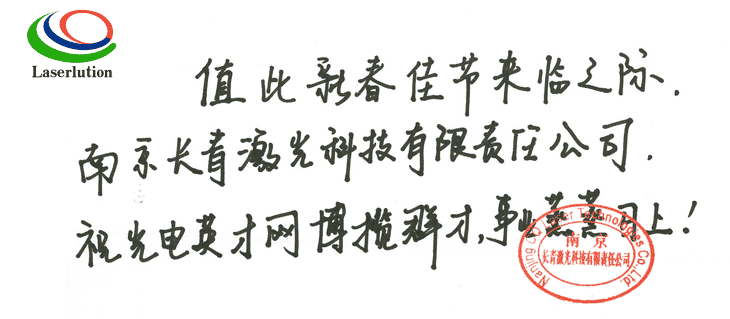 Laserlution
值此新春佳节来临之际.
南京长青激光科技有限责任公司.
祝光电英才网博揽群才,事业蒸蒸日上!
南京
长青激光科技有限责任公司